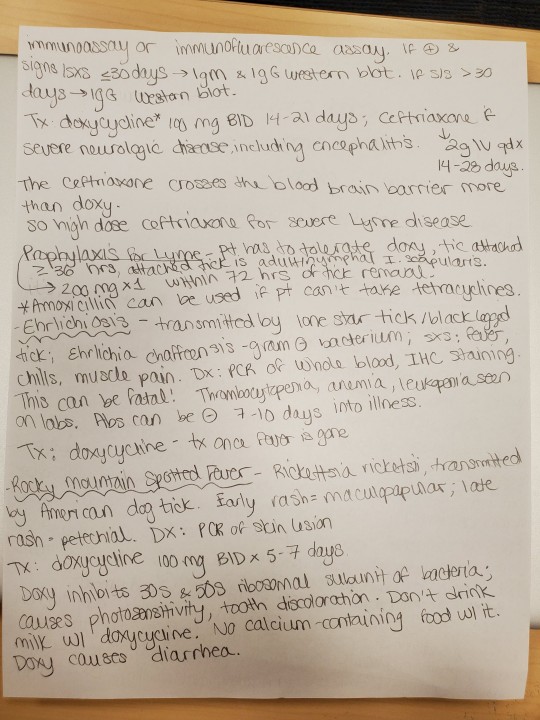 immunoassay or immunofluorescence assay. If ⊕ &
signs/sxs ≤30 days → IgM & IgG western blot. If s/s > 30
days → IgG western blot.
Tx: doxycycline* 100 mg BID 14-21 days; Ceftriaxone if
severe neurologic disease, including encephalitis. ↳ 2g IV qd x
14-28 days.
The Ceftriaxone crosses the blood brain barrier more
than doxy.
so high dose ceftriaxone for severe Lyme disease
Prophylaxis for Lyme - pt has to tolerate doxy, tic attached
≥ 36 hrs, attached tick is adult/nymphal I. scapularis.
→ 200 mg x1 within 72 hrs of tick removal.
*Amoxicillin can be used if pt can't take tetracyclines.
-Ehrlichiosis - transmitted by lone star tick/black legged
tick; Ehrlichia chaffeensis - gram ⊖ bacterium; sxs: fever,
chills, muscle pain. Dx: PCR of whole blood, IHC staining.
This can be fatal! Thrombocytopenia, anemia, leukopenia seen
on labs. Abs can be ⊖ 7-10 days into illness.
Tx: doxycycline - tx once fever is gone
-Rocky mountain Spotted Fever - Rickettsia ricketsii, transmitted
by American dog tick. Early rash = maculopapular; late
rash = petechial. DX: PCR of skin lesion
Tx: doxycycline 100 mg BID x 5-7 days
Doxy inhibits 30S & 50S ribosomal subunit of bacteria;
causes photosensitivity, tooth discoloration. Don't drink
milk w/ doxycycline. No calcium-containing food w/ it.
Doxy causes diarrhea.